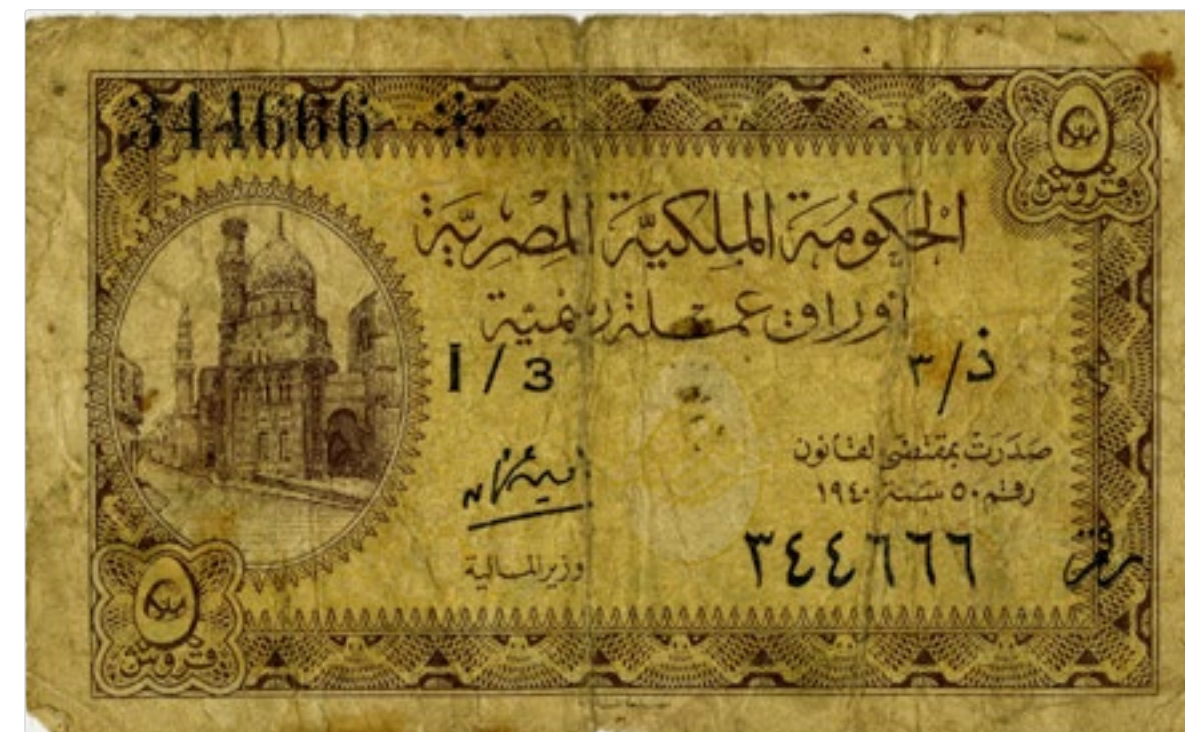 344666
٥
قروش
الحكومة الملكية المصرية
أوراق عملة رسمية
1/3
ذ/٣
صدرت بمقتضى القانون
رقم ٥٠ لسنة ١٩٤٠
وزير المالية
رقم ٣٤٤٦٦٦
٥
قروش